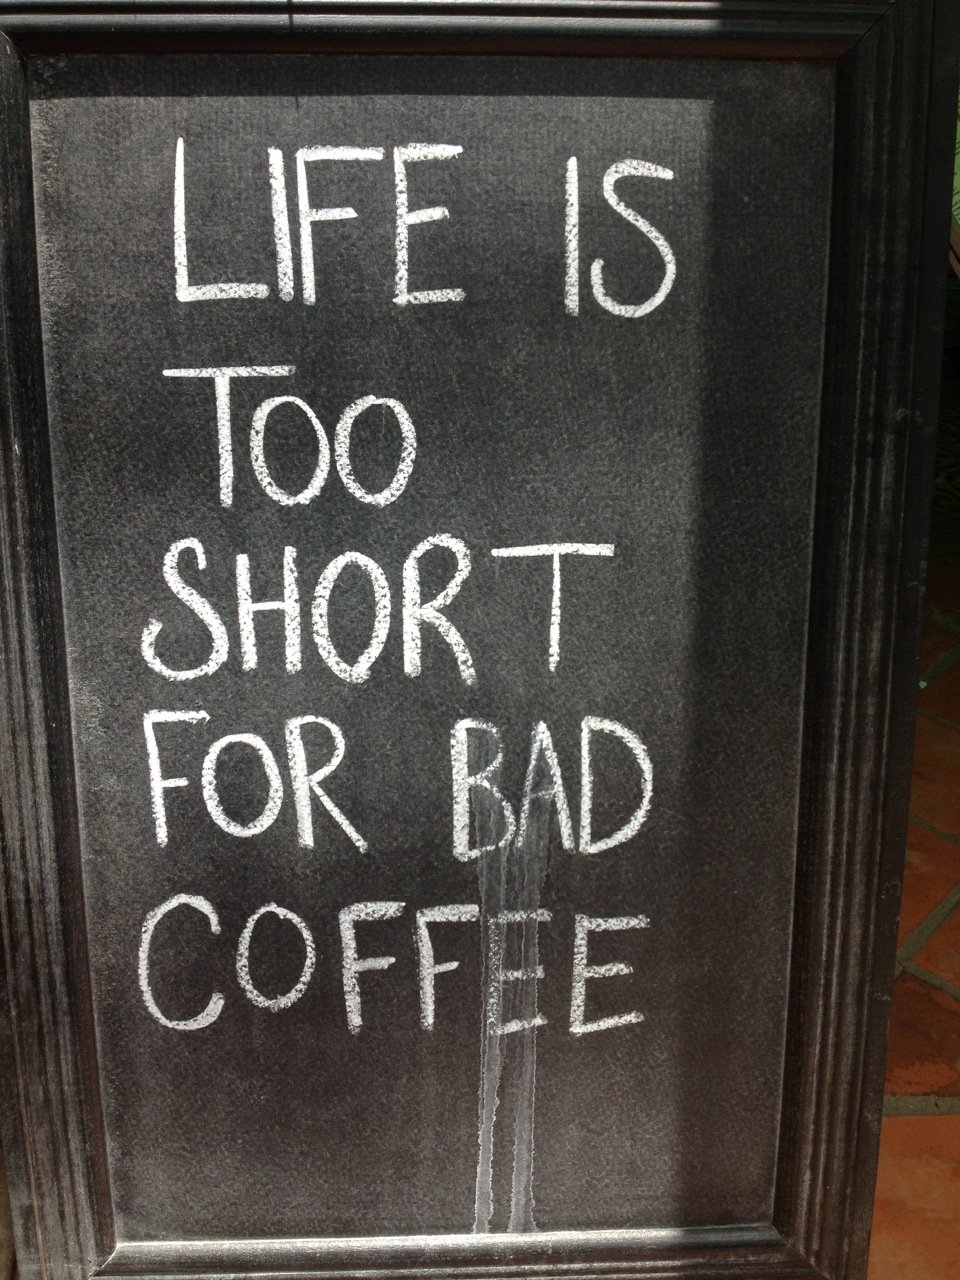 LIFE IS
TOO
SHORT
FOR BAD
COFFEE